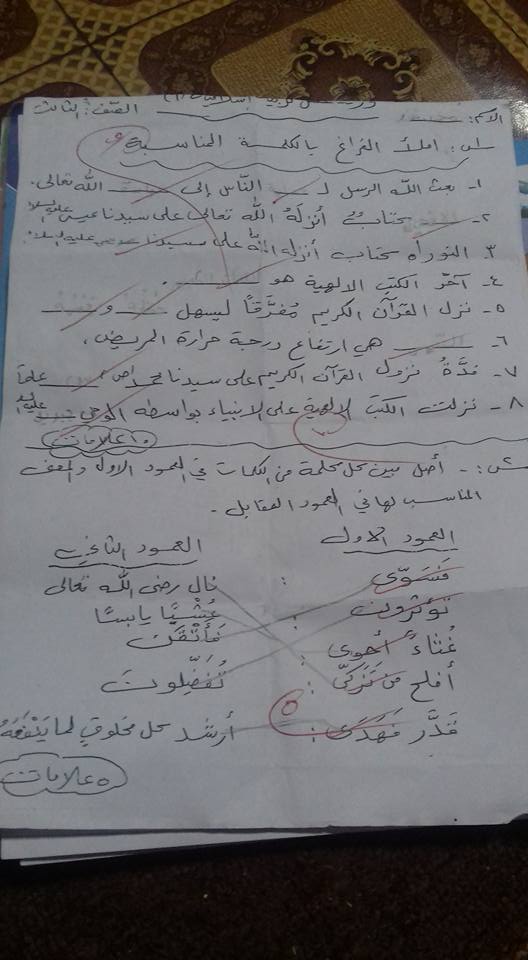 الاسم: الصّف: الثالث
س١: املأ الفراغ بالكلمة المناسبة
١- بعث الله الرسل لـ ـــــ النّاس إلى ـــــ الله تعالى.
٢- ـــــ كتابٌ أنزلَهُ الله تعالى على سيدنا عيسى عليه السلام
٣- التوراة كتاب أنزله الله على سيدنا ـــــ عليه السلام
٤- آخر الكتب الالهية هو ـــــ .
٥- نزل القرآن الكريم مُفرَّقاً ليسهل ـــــ و ـــــ
٦- ـــــ هي ارتفاع درجة حرارة المريض.
٧- مُدَّةُ نزول القرآن الكريم على سيدنا محمد ص ـــــ علماً
٨- نزلت الكتب الالهية على الانبياء بواسطة الوحي عليه السلام
١٠ علامات
س٢:- أصل بين كل كلمة من الكلمات في العمود الاول والمعنى
المناسب لها في العمود المقابل.
العمود الاول العمود الثاني
فَسَوَّى : نال رضى الله تعالى
تؤثرون : عُشْبًا يابسًا
غُثاءً أحوى : فَأَتْقَنَ
أفلح من تَزَكَّى : تُفَضِّلون
قَدَّر فَهَدَى : أرشد كل مخلوق لما يَنْفَعُهُ
٥
٥ علامات